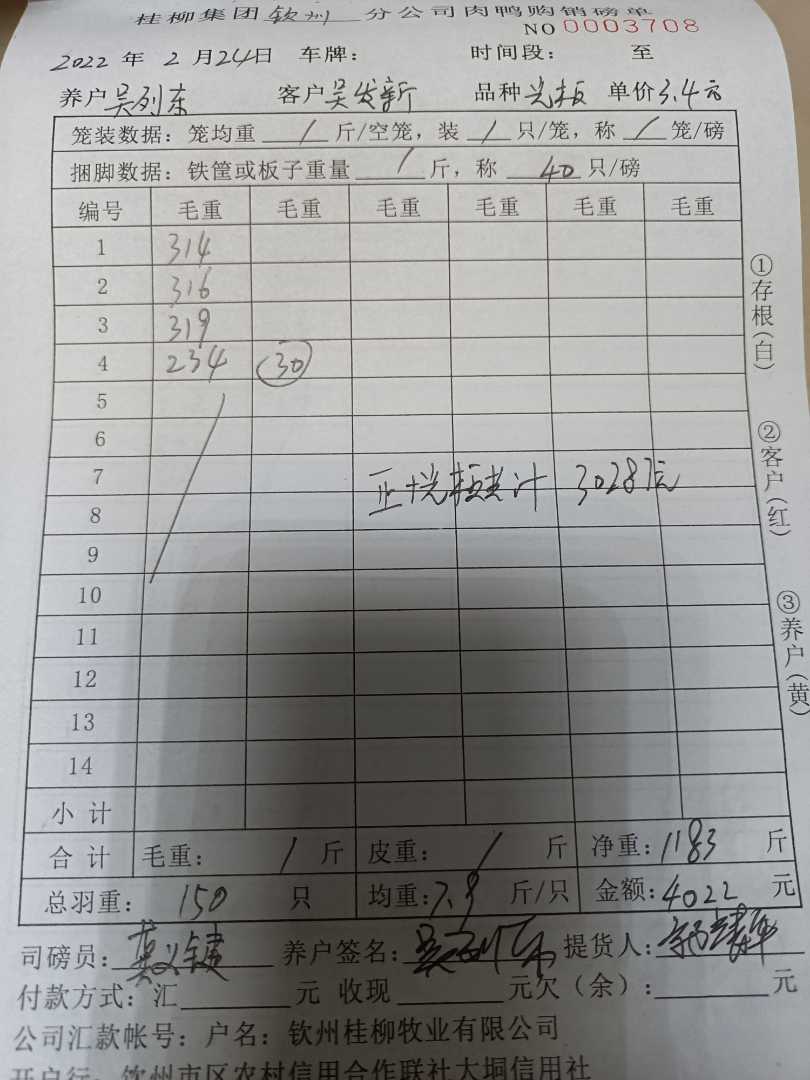 桂柳集团钦州分公司肉鸭购销磅单
NO 0003708
2022 年 2 月 24日 车牌： 时间段： 至
养户吴列东 客户吴发新 品种光板 单价3.4元
笼装数据：笼均重 / 斤/空笼，装 / 只/笼，称 / 笼/磅
捆脚数据：铁筐或板子重量 / 斤，称 40 只/磅
编号 毛重 毛重 毛重 毛重 毛重 毛重
1 314
2 316
3 319
4 234 30
5
6
7 计 3028元
8
9
10
11
12
13
14
小 计
合 计 毛重： / 斤 皮重： / 斤 净重：1183 斤
总羽重： 150 只 均重：7.9 斤/只 金额：4022 元
司磅员： 养户签名： 提货人：
付款方式：汇 元 收现 元欠（余）： 元
公司汇款帐号：户名：钦州桂柳牧业有限公司
开户行：钦州市区农村信用合作联社大垌信用社
①存根(白)
②客户(红)
③养户(黄)